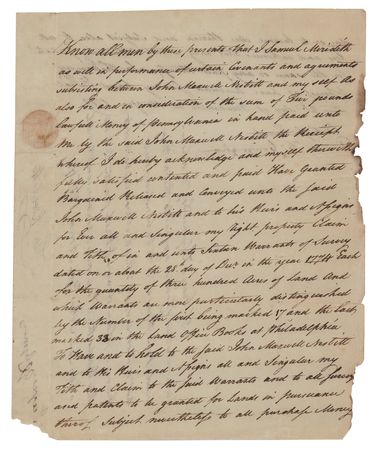 Know all men by these presents that I Samuel Meridith
as well in performance of certain Covenants and agreements
subsisting between John Maxwell Nesbitt and my self As
also for and in consideration of the sum of Five pounds
Lawfull Money of Pennsylvania in hand paid unto
me by the said John Maxwell Nesbitt the Receipt
whereof I do hereby acknowledge and myself therewith
fully satisfied contented and paid Have Granted
Bargained Released and Conveyed unto the said
John Maxwell Nesbitt and to his Heirs and Assigns
for Ever all and Singular my right property Claim
and Title of in and unto Sixteen Warrants of Survey
dated on or about the 28 day of Decr in the year Each
for the quantity of three hundred Acres of land And
which Warrants are more particularly distinguished
by the Number of the first being marked 17 and the last
marked 32 in the Land Office Books at Philadelphia
To Have and to hold to the said John Maxwell Nesbitt
and to His Heirs and Assigns all and Singular my
Title and Claim to the said Warrants and to all
and patents to be granted for Lands in pursuance
thereof Subject nevertheless to all purchase Money